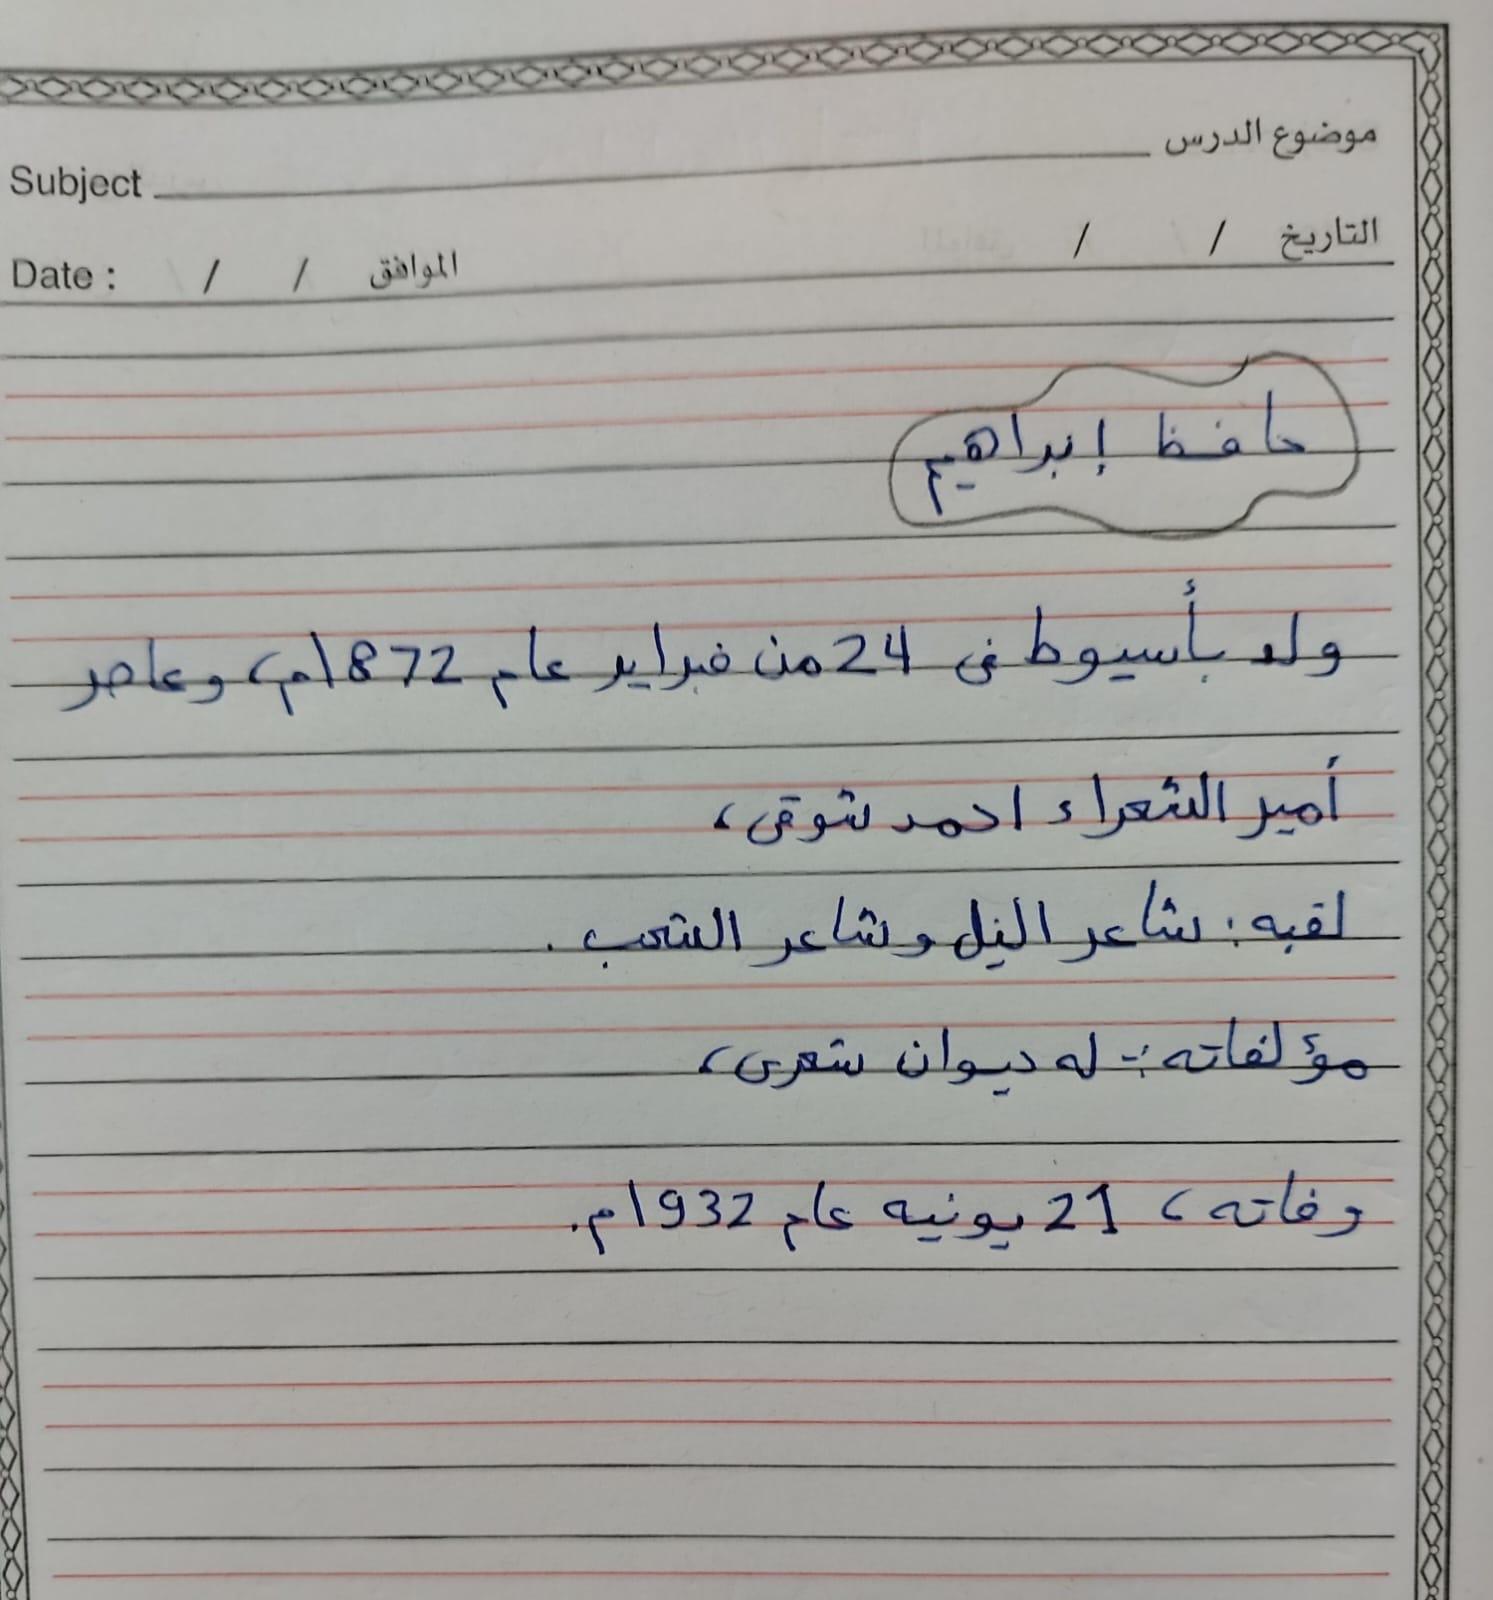 موضوع الدرس
Subject
التاريخ / /
الموافق / / Date :
حافظ إبراهيم
ولد بأسيوط فى 24 من فبراير عام 1872م، وعاصر
أمير الشعراء احمد شوقى،
لقبه : شاعر النيل وشاعر الشعب .
مؤلفاته :- له ديوان شعرى،
وفاته ، 21 يونيه عام 1932م.